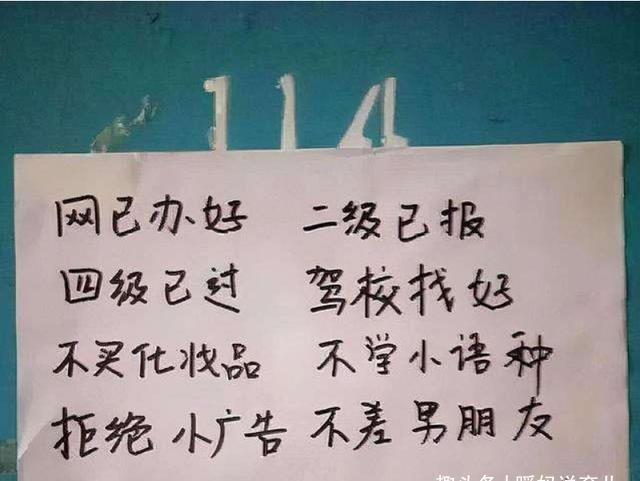 114
网已办好 二级已报
四级已过 驾校找好
不买化妆品 不学小语种
拒绝小广告 不差男朋友